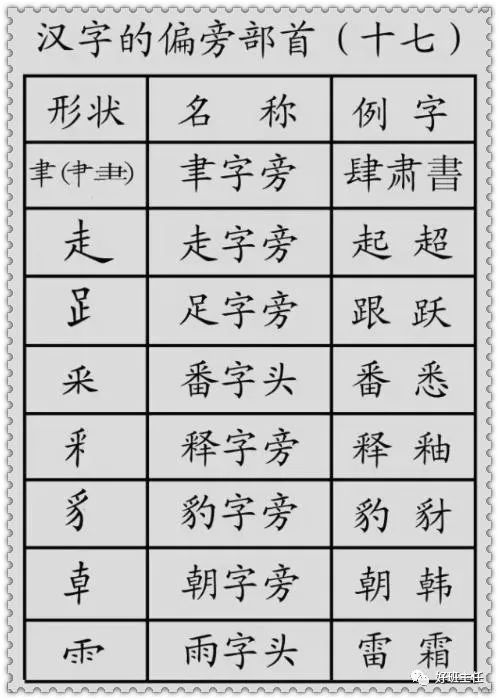 汉字的偏旁部首（十七）
形状 名称 例字
聿(肀⺻) 聿字旁 肆肃書
走 走字旁 起 超
⻊ 足字旁 跟 跃
釆 番字头 番 悉
釆 释字旁 释 釉
豸 豹字旁 豹 豺
龺 朝字旁 朝 韩
⻗ 雨字头 雷 霜
好班主任